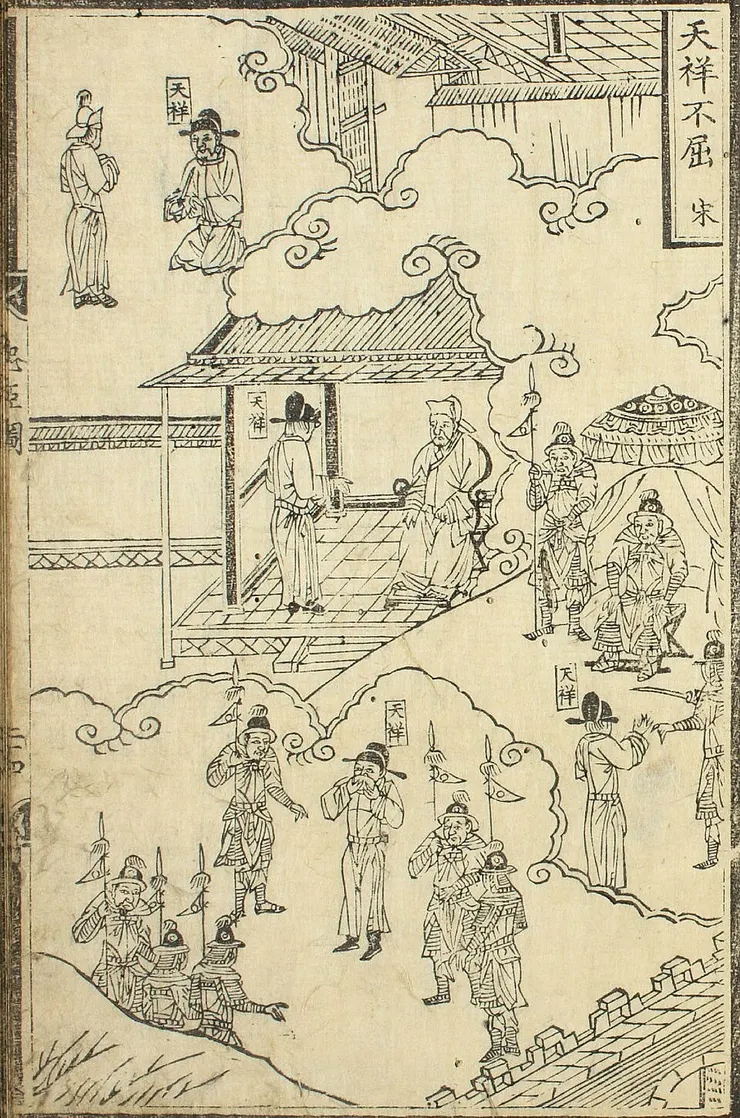 天祥不屈 宋
天祥
天祥
天祥
天祥
忠臣圖